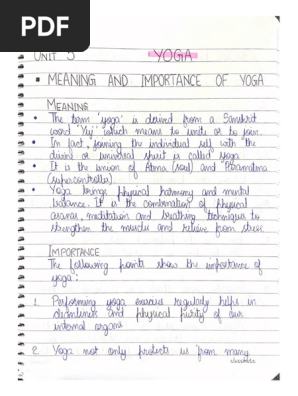 PDF
UNIT 3
YOGA
MEANING AND IMPORTANCE OF YOGA
MEANING
• The term 'yoga' is derived from a Sanskrit
word 'Yuj' which means to unite or to join.
• In fact, joining the individual self with the
divine or universal spirit is called yoga
• It is the union of Atma (soul) and Paramatma
(supercontroller).
• Yoga brings physical harmony and mental
balance. It is the combination of physical
asanas, meditation and breathing techniques to
strengthen the muscles and relieve from stress.
IMPORTANCE
The following points show the importance of
yoga:
1. Performing yoga exercises regularly helps in
cleanliness and physical purity of our
internal organs
2. Yoga not only protects us from many